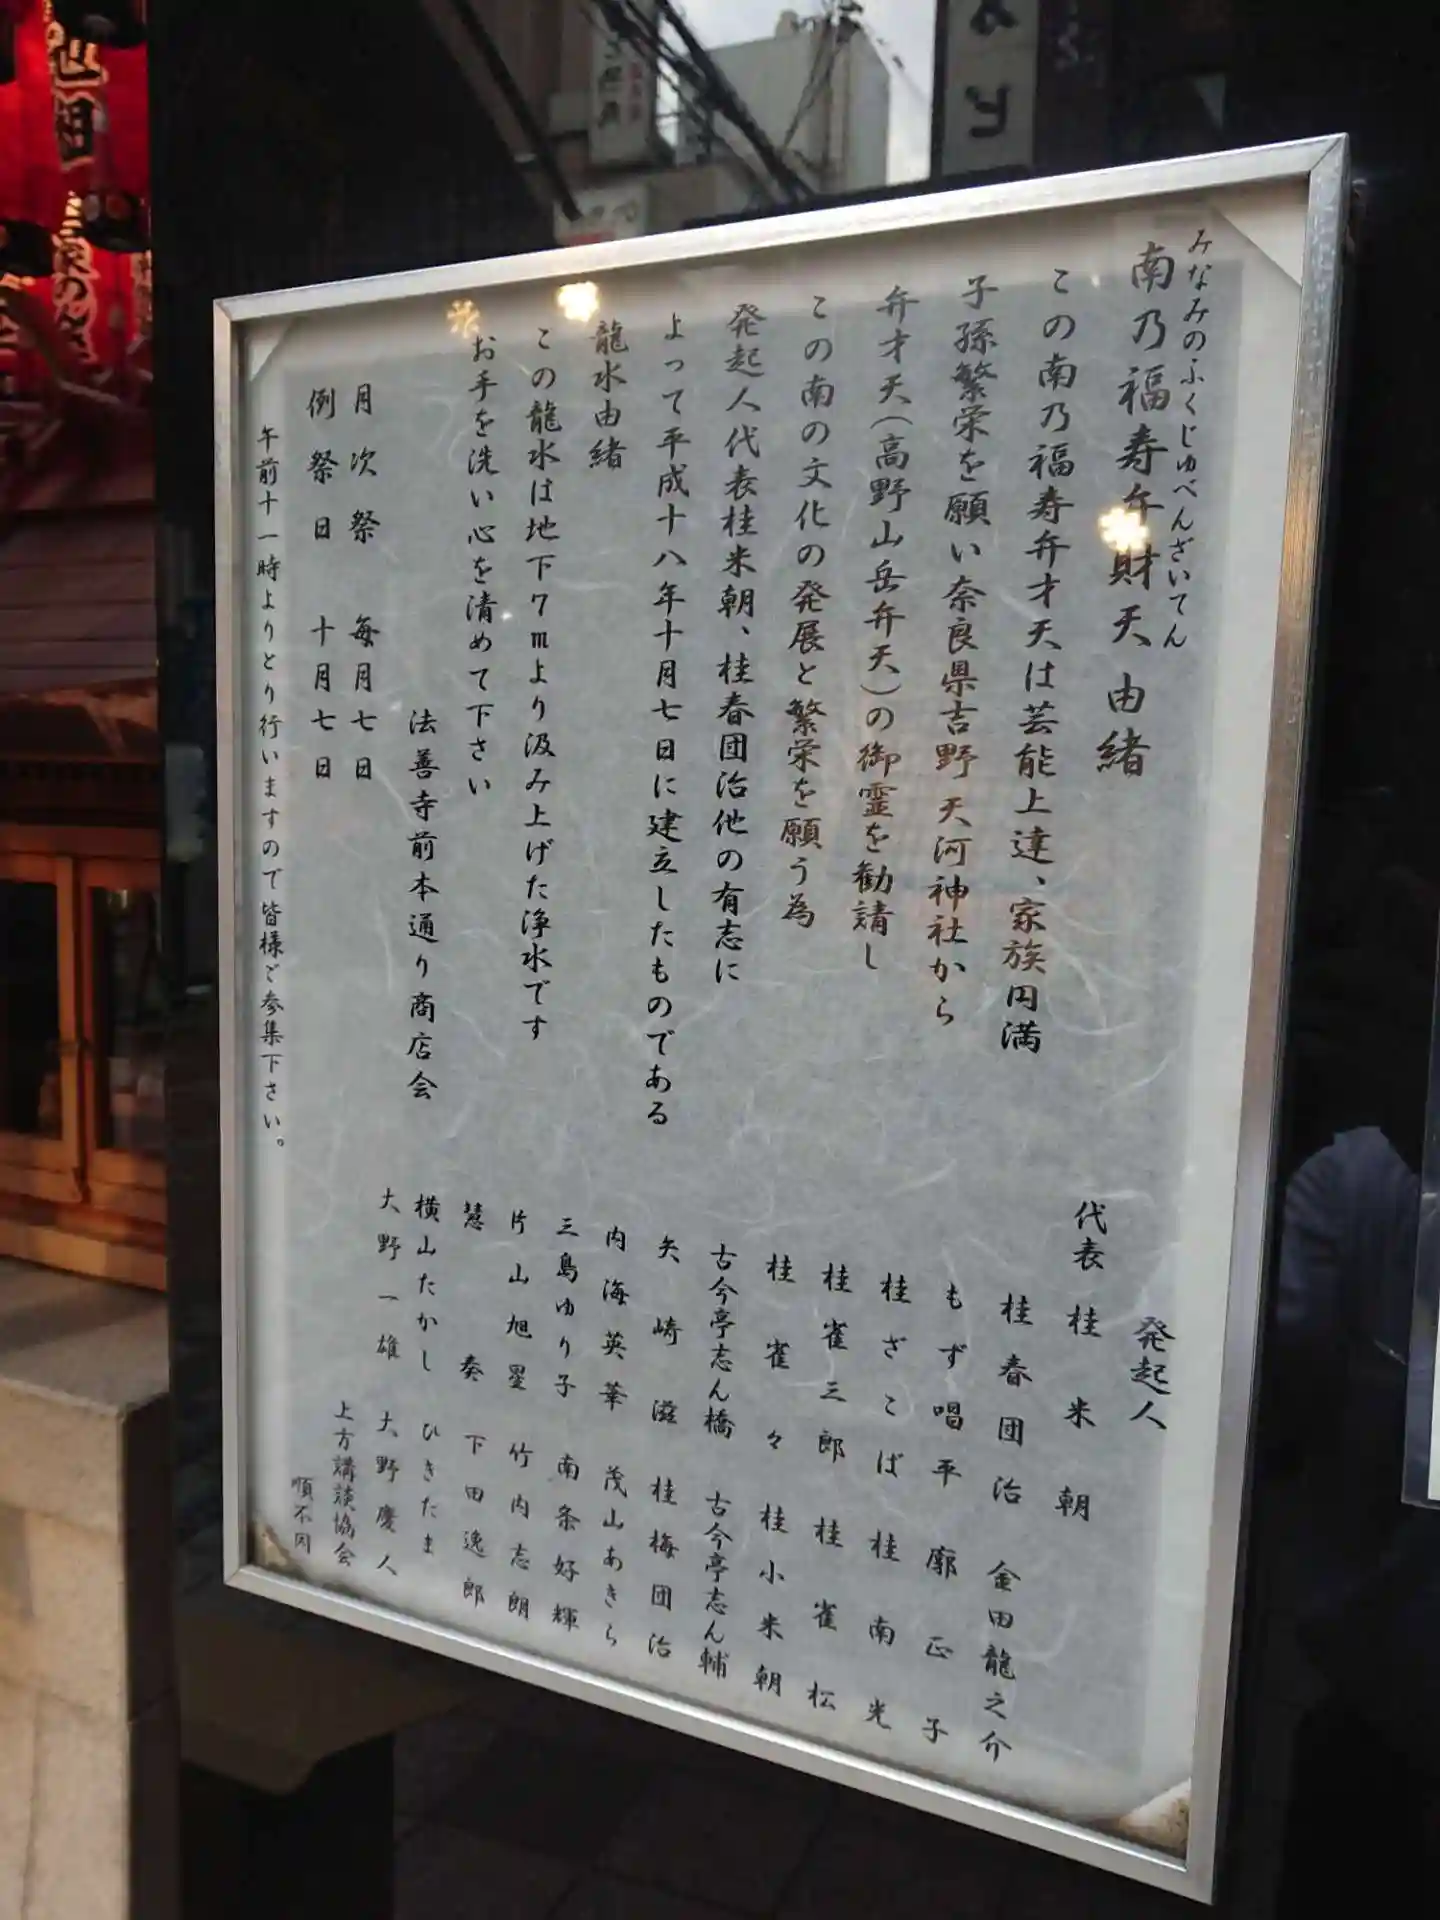 みなみのふくじゅべんざいてん
南乃福寿弁財天 由緒
この南乃福寿弁才天は芸能上達、家族円満
子孫繁栄を願い奈良県吉野 天河神社から
弁才天(高野山岳弁天)の御霊を勧請し
この南の文化の発展と繁栄を願う為
発起人代表桂米朝、桂春団治他の有志に
よって平成十八年十月七日に建立したものである
龍水由緒
この龍水は地下7mより汲み上げた浄水です
お手を洗い心を清めて下さい
法善寺前本通り商店会
月次祭 毎月七日
例祭日 十月七日
午前十一時よりとり行いますので皆様ご参集下さい。
発起人
代表 桂米朝
桂春団治 金田龍之介
もず唱平 廓正子
桂ざこば 桂南光
桂雀三郎 桂雀松
桂雀々 桂小米朝
古今亭志ん橋 古今亭志ん輔
矢崎滋 桂梅団治
内海英華 茂山あきら
三島ゆり子 南条好輝
片山旭星 竹内志朗
慧奏 下田逸郎
横山たかし ひきたま
大野一雄 大野慶人
上方講談協会
順不同